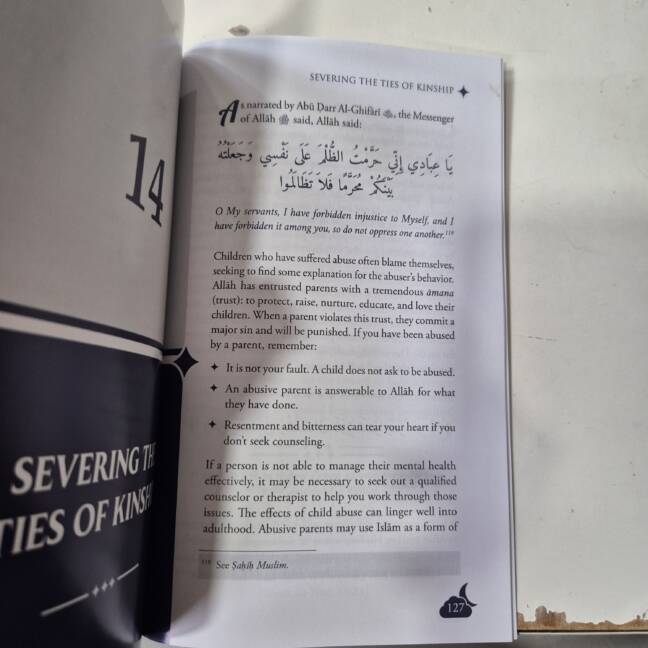 14
SEVERING THE
TIES OF KINSHIP
SEVERING THE TIES OF KINSHIP
As narrated by Abū Ḍarr Al-Ghifārī, the Messenger
of Allāh ﷺ said, Allāh said:
يَا عِبَادِي إِنِّي حَرَّمْتُ الظُّلْمَ عَلَى نَفْسِي وَجَعَلْتُهُ
بَيْنَكُمْ مُحَرَّمًا فَلاَ تَظَالَمُوا
O My servants, I have forbidden injustice to Myself, and I
have forbidden it among you, so do not oppress one another.¹¹⁹
Children who have suffered abuse often blame themselves,
seeking to find some explanation for the abuser's behavior.
Allāh has entrusted parents with a tremendous āmana
(trust): to protect, raise, nurture, educate, and love their
children. When a parent violates this trust, they commit a
major sin and will be punished. If you have been abused
by a parent, remember:
It is not your fault. A child does not ask to be abused.
An abusive parent is answerable to Allāh for what
they have done.
Resentment and bitterness can tear your heart if you
don't seek counseling.
If a person is not able to manage their mental health
effectively, it may be necessary to seek out a qualified
counselor or therapist to help you work through those
issues. The effects of child abuse can linger well into
adulthood. Abusive parents may use Islām as a form of
See Ṣaḥīḥ Muslim.
127